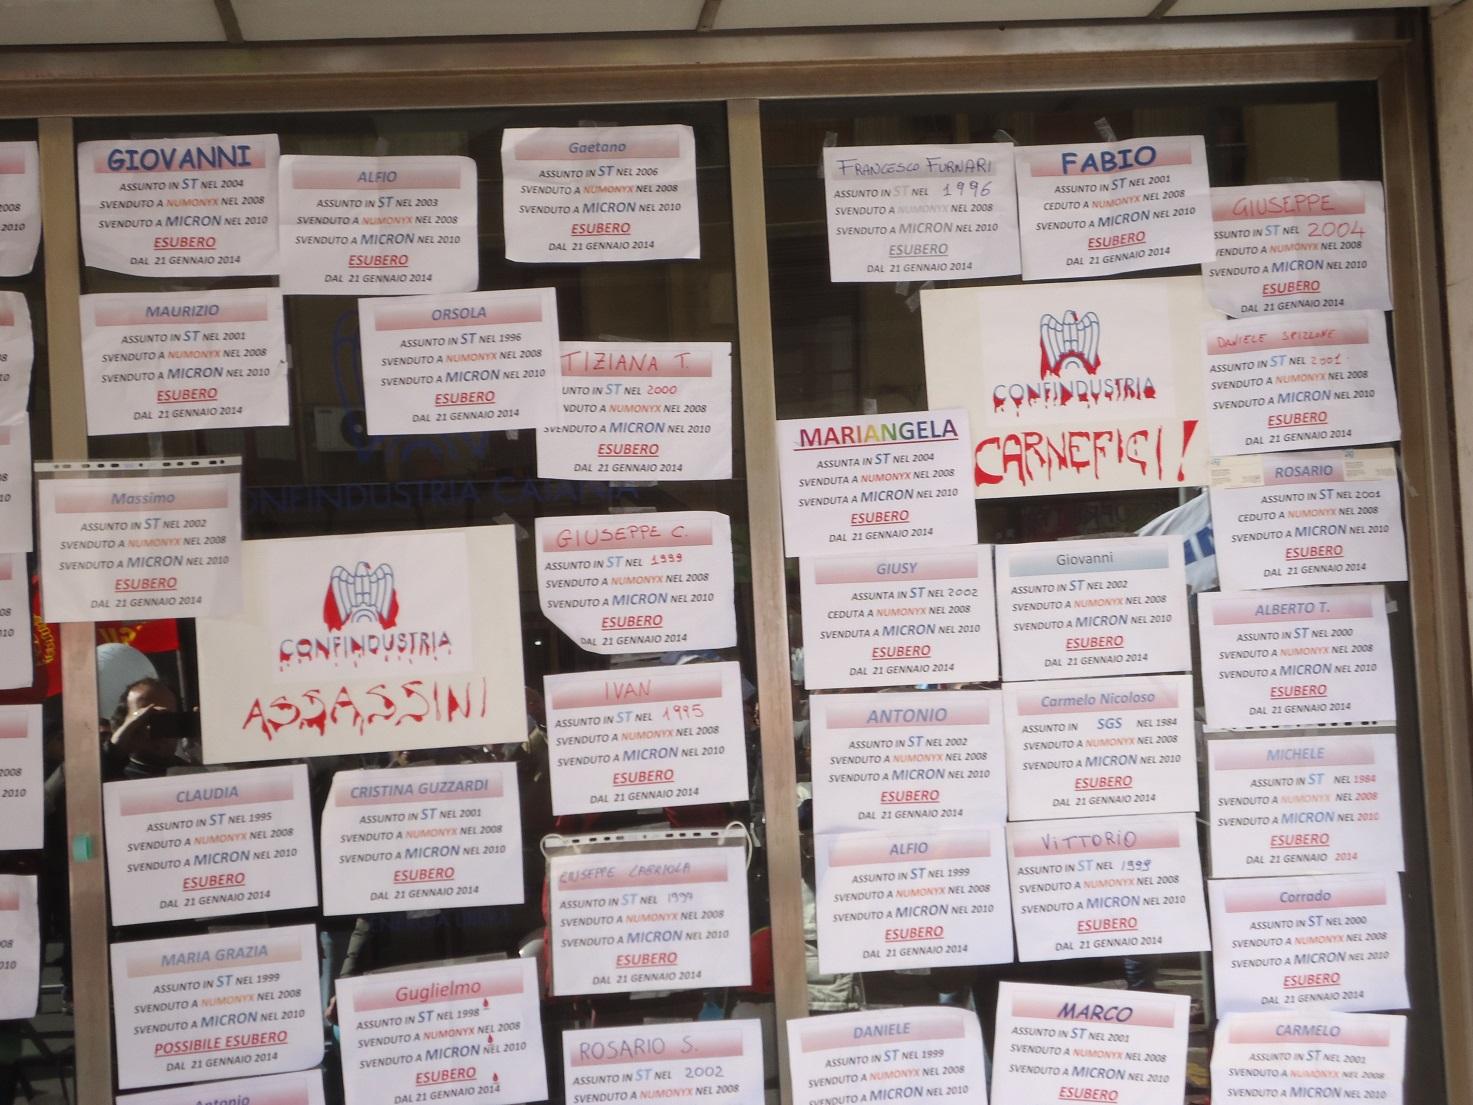 GIOVANNI
ASSUNTO IN ST NEL 2004
SVENDUTO A NUMONYX NEL 2008
SVENDUTO A MICRON NEL 2010
ESUBERO
DAL 21 GENNAIO 2014
ALFIO
ASSUNTO IN ST NEL 2003
SVENDUTO A NUMONYX NEL 2008
SVENDUTO A MICRON NEL 2010
ESUBERO
DAL 21 GENNAIO 2014
Gaetano
ASSUNTO IN ST NEL 2006
SVENDUTO A NUMONYX NEL 2008
SVENDUTO A MICRON NEL 2010
ESUBERO
DAL 21 GENNAIO 2014
MAURIZIO
ASSUNTO IN ST NEL 2001
SVENDUTO A NUMONYX NEL 2008
SVENDUTO A MICRON NEL 2010
ESUBERO
DAL 21 GENNAIO 2014
ORSOLA
ASSUNTO IN ST NEL 1996
SVENDUTO A NUMONYX NEL 2008
SVENDUTO A MICRON NEL 2010
ESUBERO
DAL 21 GENNAIO 2014
TIZIANA T.
UNTO IN ST NEL 2000
NDUTO A NUMONYX NEL 2008
SVENDUTO A MICRON NEL 2010
ESUBERO
DAL 21 GENNAIO 2014
CONFINDUSTRIA CATANIA
Massimo
ASSUNTO IN ST NEL 2002
SVENDUTO A NUMONYX NEL 2008
SVENDUTO A MICRON NEL 2010
ESUBERO
DAL 21 GENNAIO 2014
CONFINDUSTRIA
ASSASSINI
GIUSEPPE C.
ASSUNTO IN ST NEL 1999
SVENDUTO A NUMONYX NEL 2008
SVENDUTO A MICRON NEL 2010
ESUBERO
DAL 21 GENNAIO 2014
IVAN
ASSUNTO IN ST NEL 1995
SVENDUTO A NUMONYX NEL 2008
SVENDUTO A MICRON NEL 2010
ESUBERO
DAL 21 GENNAIO 2014
CLAUDIA
ASSUNTO IN ST NEL 1995
SVENDUTO A NUMONYX NEL 2008
SVENDUTO A MICRON NEL 2010
ESUBERO
DAL 21 GENNAIO 2014
CRISTINA GUZZARDI
ASSUNTO IN ST NEL 2001
SVENDUTO A NUMONYX NEL 2008
SVENDUTO A MICRON NEL 2010
ESUBERO
DAL 21 GENNAIO 2014
GIUSEPPE
ASSUNTO IN ST NEL
SVENDUTO A NUMONYX NEL 2008
SVENDUTO A MICRON NEL 2010
ESUBERO
DAL 21 GENNAIO 2014
MARIA GRAZIA
ASSUNTO IN ST NEL 1999
SVENDUTO A NUMONYX NEL 2008
SVENDUTO A MICRON NEL 2010
POSSIBILE ESUBERO
DAL 21 GENNAIO 2014
Guglielmo
ASSUNTO IN ST NEL 1998
SVENDUTO A NUMONYX NEL 2008
SVENDUTO A MICRON NEL 2010
ESUBERO
DAL 21 GENNAIO 2014
ROSARIO S.
ASSUNTO IN ST NEL 2002
SVENDUTO A NUMONYX NEL 2008
Antonio
FRANCESCO FURNARI
ASSUNTO IN ST NEL 1996
SVENDUTO A NUMONYX NEL 2008
SVENDUTO A MICRON NEL 2010
ESUBERO
DAL 21 GENNAIO 2014
FABIO
ASSUNTO IN ST NEL 2001
CEDUTO A NUMONYX NEL 2008
SVENDUTO A MICRON NEL 2010
ESUBERO
DAL 21 GENNAIO 2014
GIUSEPPE
SSUNTO IN ST NEL 2004
VENDUTO A NUMONYX NEL 2008
SVENDUTO A MICRON NEL 2010
ESUBERO
DAL 21 GENNAIO 2014
CONFINDUSTRIA
CARNEFICI!
DANIELE SPIZZONE
ASSUNTO IN ST NEL 2001
SVENDUTO A NUMONYX NEL 2008
SVENDUTO A MICRON NEL 2010
ESUBERO
DAL 21 GENNAIO 2014
MARIANGELA
ASSUNTA IN ST NEL 2004
SVENDUTA A NUMONYX NEL 2008
SVENDUTA A MICRON NEL 2010
ESUBERO
DAL 21 GENNAIO 2014
ROSARIO
ASSUNTO IN ST NEL 2001
CEDUTO A NUMONYX NEL 2008
SVENDUTO A MICRON NEL 2010
ESUBERO
DAL 21 GENNAIO 2014
GIUSY
ASSUNTA IN ST NEL 2002
CEDUTA A NUMONYX NEL 2008
SVENDUTA A MICRON NEL 2010
ESUBERO
DAL 21 GENNAIO 2014
Giovanni
ASSUNTO IN ST NEL 2002
SVENDUTO A NUMONYX NEL 2008
SVENDUTO A MICRON NEL 2010
ESUBERO
DAL 21 GENNAIO 2014
ALBERTO T.
ASSUNTO IN ST NEL 2000
SVENDUTO A NUMONYX NEL 2008
SVENDUTO A MICRON NEL 2010
ESUBERO
DAL 21 GENNAIO 2014
ANTONIO
ASSUNTO IN ST NEL 2002
SVENDUTO A NUMONYX NEL 2008
SVENDUTO A MICRON NEL 2010
ESUBERO
DAL 21 GENNAIO 2014
Carmelo Nicoloso
ASSUNTO IN SGS NEL 1984
SVENDUTO A NUMONYX NEL 2008
SVENDUTO A MICRON NEL 2010
ESUBERO
DAL 21 GENNAIO 2014
MICHELE
ASSUNTO IN ST NEL 1984
SVENDUTO A NUMONYX NEL 2008
SVENDUTO A MICRON NEL 2010
ESUBERO
DAL 21 GENNAIO 2014
ALFIO
ASSUNTO IN ST NEL 1999
SVENDUTO A NUMONYX NEL 2008
SVENDUTO A MICRON NEL 2010
ESUBERO
DAL 21 GENNAIO 2014
VITTORIO
ASSUNTO IN ST NEL 1999
SVENDUTO A NUMONYX NEL 2008
SVENDUTO A MICRON NEL 2010
ESUBERO
DAL 21 GENNAIO 2014
Corrado
ASSUNTO IN ST NEL 2000
SVENDUTO A NUMONYX NEL 2008
SVENDUTO A MICRON NEL 2010
ESUBERO
DAL 21 GENNAIO 2014
DANIELE
ASSUNTO IN ST NEL 1999
SVENDUTO A NUMONYX NEL 2008
SVENDUTO A MICRON NEL 2010
MARCO
ASSUNTO IN ST NEL 2001
SVENDUTO A NUMONYX NEL 2008
SVENDUTO A MICRON NEL 2010
ESUBERO
CARMELO
ASSUNTO IN ST NEL 2001
SVENDUTO A NUMONYX NEL 2008
SVENDUTO A MICRON NEL 2010